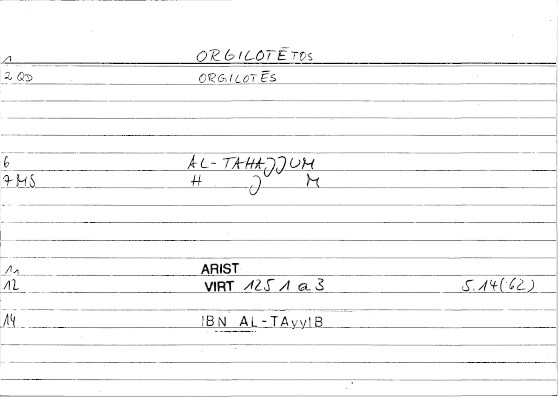 1 ORGILOTĒTOS
2 QD ORGILOTĒS
6 AL-TAHAJJUM
7 MS H J M
11 ARIST
12 VIRT 1251 a 3 5.14(62)
14 IBN AL-TAyyIB